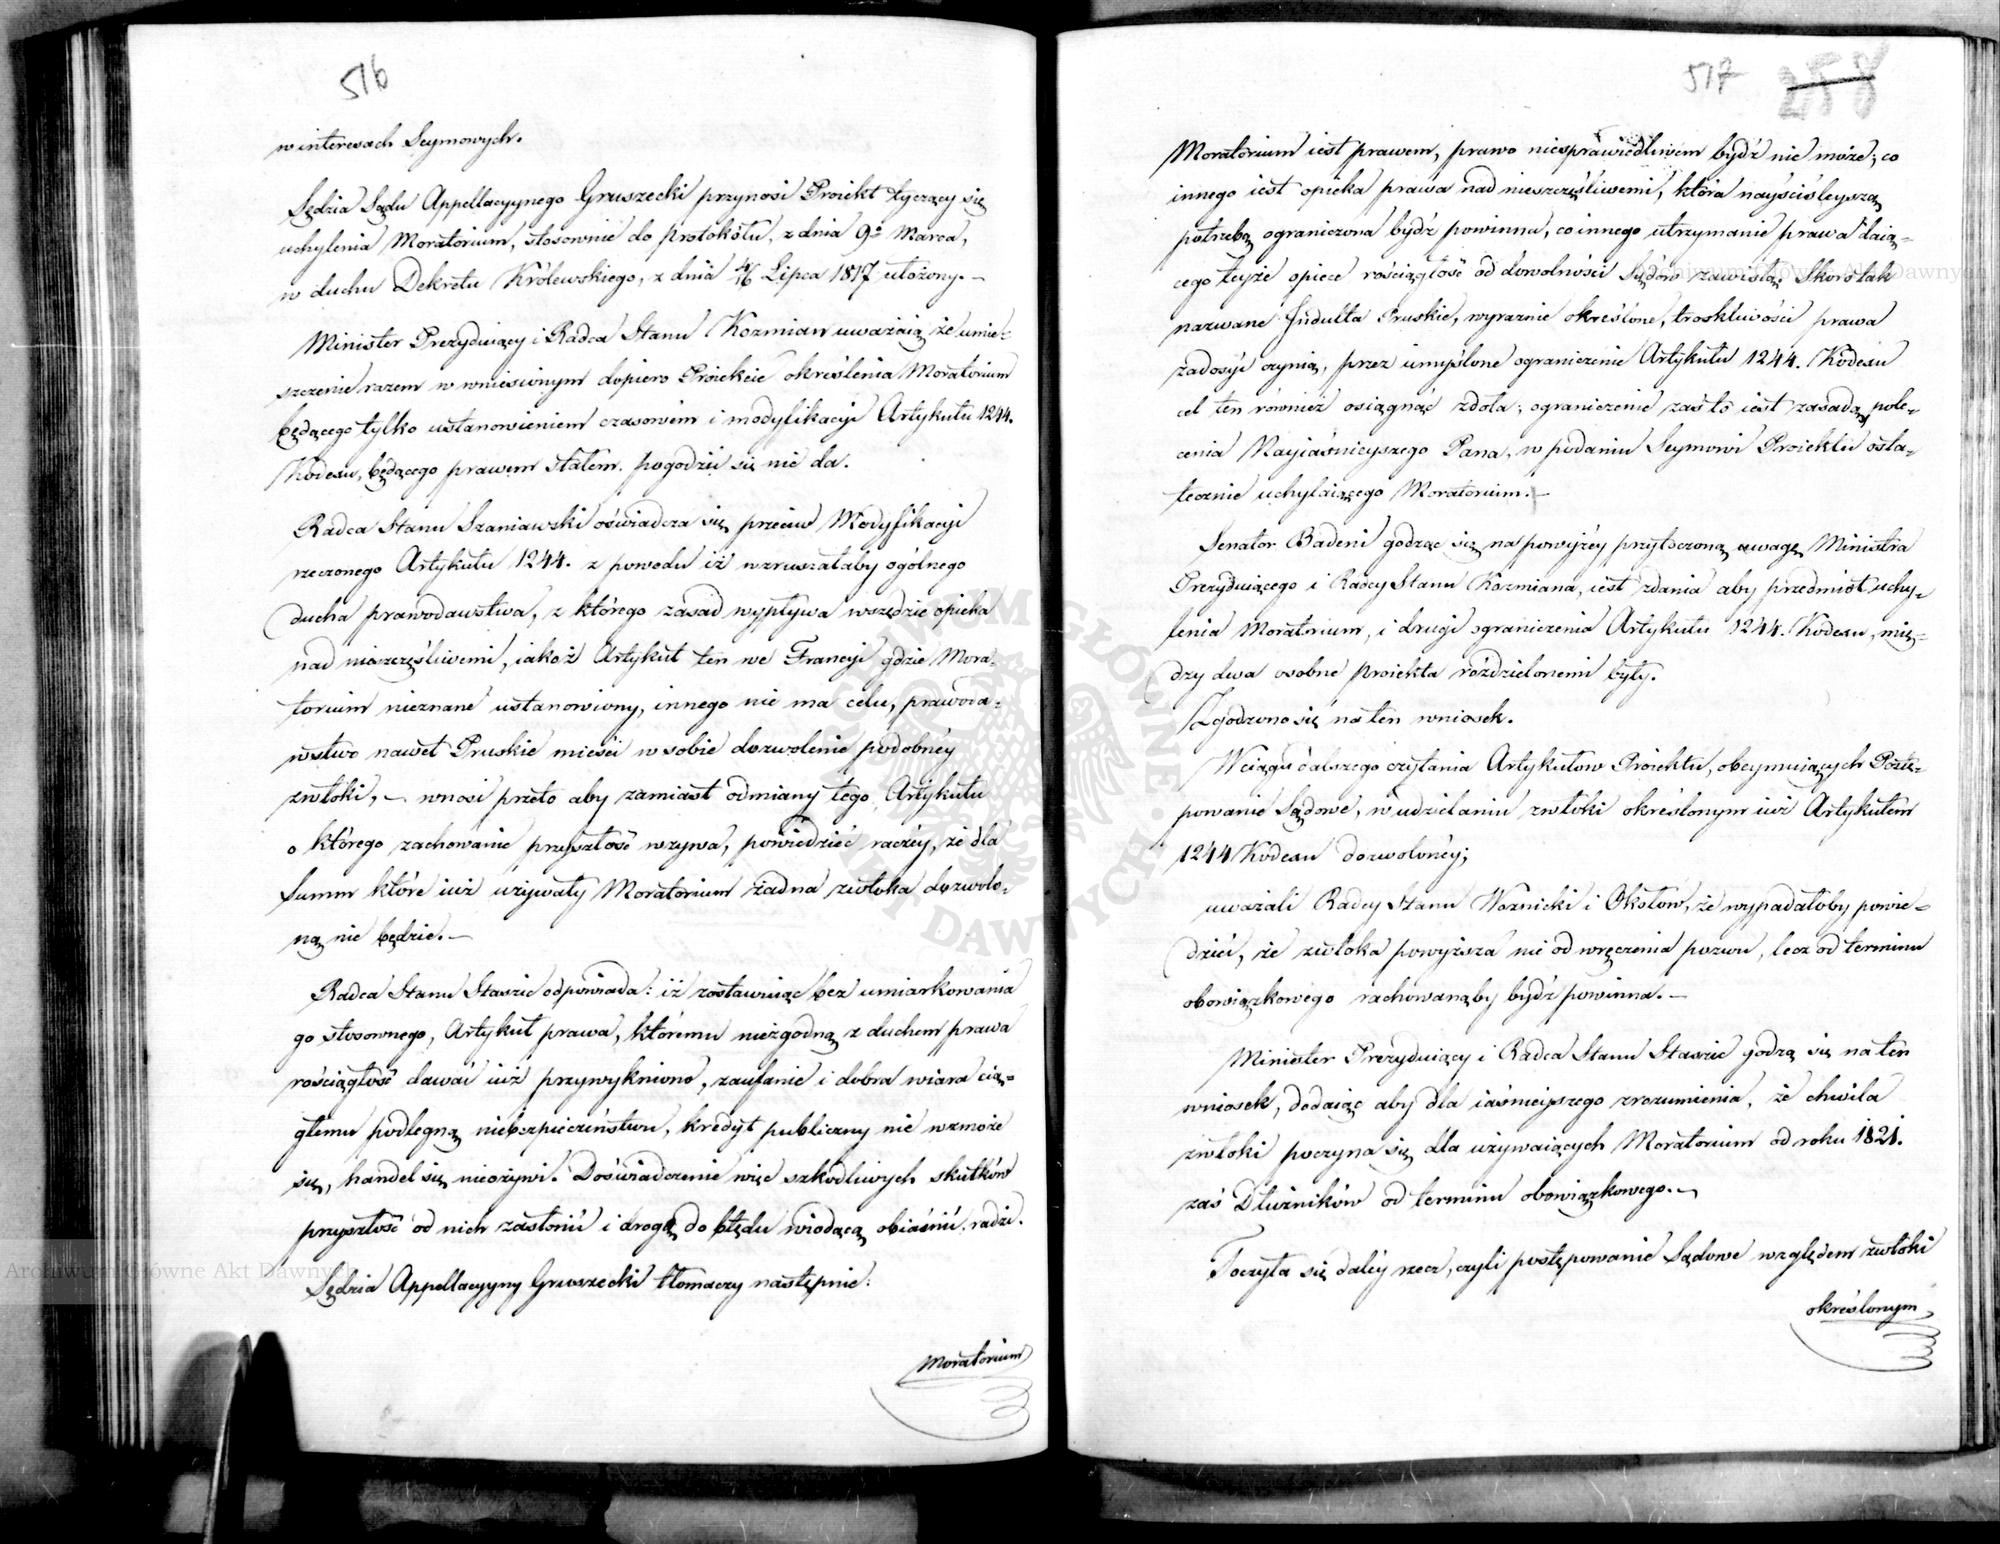 516
w interesach Seymowych.
Sędzia Sądu Appellacyynego Gruszecki przynosi Proiekt tyczący się
uchylenia Moratorium, stosownie do protokółu, z dnia 9º Marca,
w duchu Dekretu Królewskiego, z dnia 4/16 Lipca 1817 ułożony. —
Minister Prezyduiący i Radca Stanu Kozmian uważaią, że umie-
szczenie razem w wniesionym dopiero Proiekcie określenia Moratorium
będącego tylko ustanowieniem czasowém i modyfikacyi Artykułu 1244.
Kodexu, będącego prawem stałem. pogodzić się nie da.
Radca Stanu Szaniawski oświadcza się przeciw Modyfikacyi
rzeczonego Artykułu 1244. z powodu iż wzruszałaby ogólnego
ducha prawodawstwa, z którego zasad wypływa wszędzie opieka
nad nieszczęśliwemi, iakoż Artykuł ten we Francyi gdzie Mora-
torium nieznane ustanowiony, innego nie ma celu, prawoda-
wstwo nawet Pruskie mieści w sobie dozwolenie podobnéy
zwłoki, — wnosi przeto aby zamiast odmiany tego Artykułu
o którego zachowanie przyszłość wzywa, powiedzieć raczéy, że dla
Summ które iuż używały Moratorium żadna zwłoka dozwolo-
ną nie będzie. —
Radca Stanu Staszic odpowiada: iż zostawuiąc bez umiarkowania
go stosownego, Artykuł prawa, któremu niezgodną z duchem prawa
rościągłość dawać iuż przywykniono, zaufanie i dobra wiara cią-
głemu podlegną niebezpieczeństwu, kredyt publiczny nie wzmoże
się, handel się nieożywi. Doświadczenie więc szkodliwych skutków
przyszłość od nich zasłonić i drogę do błędu wiodącą obiaśnić radzi.
Sędzia Appellacyyny Gruszecki tłomaczy następnie:
Moratorium
517 258
Moratorium iest prawem, prawo niesprawiedliwem bydź nie może; co
innego iest opieka prawa nad nieszczęśliwemi, która nayściśleyszą
potrzebą ograniczona bydź powinna, co innego utrzymanie prawa daią-
cego teyże opiece rościągłość od dowolności Sądów zawisłą. Skoro tak
nazwane Indulta Pruskie, wyraznie określone, troskliwości prawa
zadosyć czynią, przez umyślone ograniczenie Artykułu 1244. Kodexu
cel ten również osiągnąć zdoła; ograniczenie zaś to iest zasadą pole-
cenia Nayiaśnieyszego Pana, w podaniu Seymowi Proiektu osta-
tecznie uchylaiącego Moratorium. —
Senator Badeni godząc się na powyżéy przytoczoną uwagę Ministra
Prezyduiącego i Radcy Stanu Kozmiana, iest zdania aby przedmiot uchy-
lenia Moratorium, i drugi ograniczenia Artykułu 1244. Kodexu, mię-
dzy dwa osobne proiekta rozdzielonemi były.
Zgodzono się na ten wniosek.
W ciągu dalszego czytania Artykułow Proiektu, obeymuiących Postę-
powanie Sądowe, w udzielaniu zwłoki określonym iuż Artykułem
1244 Kodexu dozwolonéy;
uważali Radcy Stanu Woznicki i Okołow, że wypadałoby powie-
dzieć, że zwłoka powyższa nie od wręczenia pozwu, lecz od terminu
obowiązkowego rachowanąby bydź powinna. —
Minister Prezyduiący i Radca Stanu Staszic godzą się na ten
wniosek, dodaiąc aby dla iaśnieyszego zrozumienia, że chwila
zwłoki poczyna się dla używaiących Moratorium od roku 1821.
zaś Dłużników od terminu obowiązkowego. —
Toczyła się daléy rzecz, czyli postępowanie Sądowe względem zwłoki
określonym